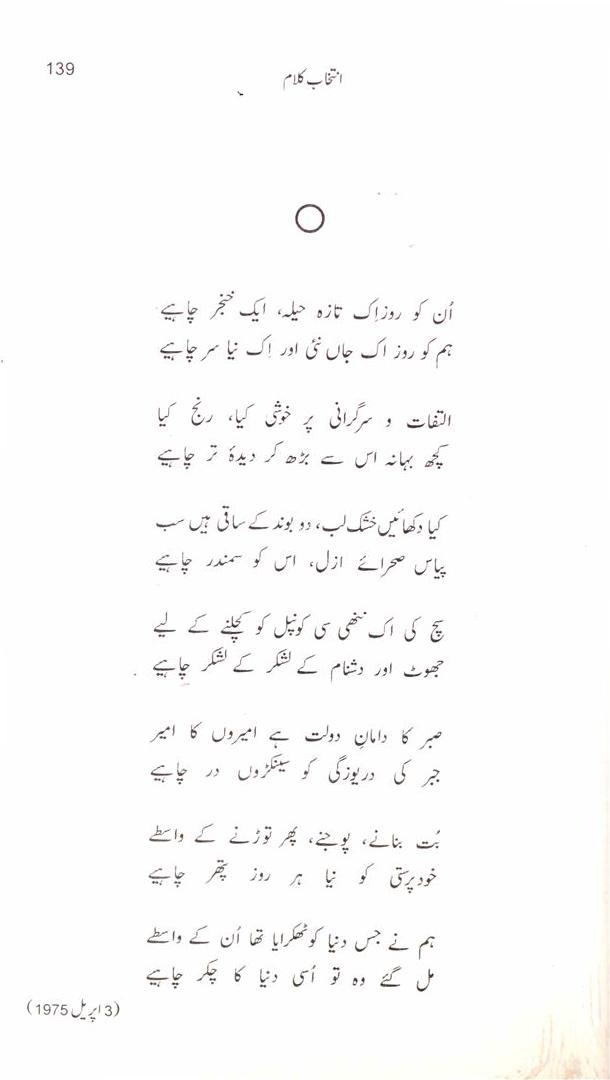 139
انتخاب کلام
اُن کو روز اِک تازہ حیلہ، ایک خنجر چاہیے
ہم کو روز اک جاں نئی اور اِک نیا سر چاہیے
التفات و سرگرانی پر خوشی کیا، رنج کیا
کچھ بہانہ اس سے بڑھ کر دیدۂ تر چاہیے
کیا دکھائیں خشک لب، دو بوند کے ساقی ہیں سب
پیاس صحرائے ازل، اس کو سمندر چاہیے
سچ کی اک ننھی سی کونپل کو کچلنے کے لیے
جھوٹ اور دشنام کے لشکر کے لشکر چاہیے
صبر کا دامانِ دولت ہے امیروں کا امیر
جبر کی دریوزگی کو سینکڑوں در چاہیے
بُت بنانے، پوجنے، پھر توڑنے کے واسطے
خود پرستی کو نیا ہر روز پتھر چاہیے
ہم نے جس دنیا کو ٹھکرایا تھا اُن کے واسطے
مل گئے وہ تو اُسی دنیا کا چکر چاہیے
(3 اپریل 1975)